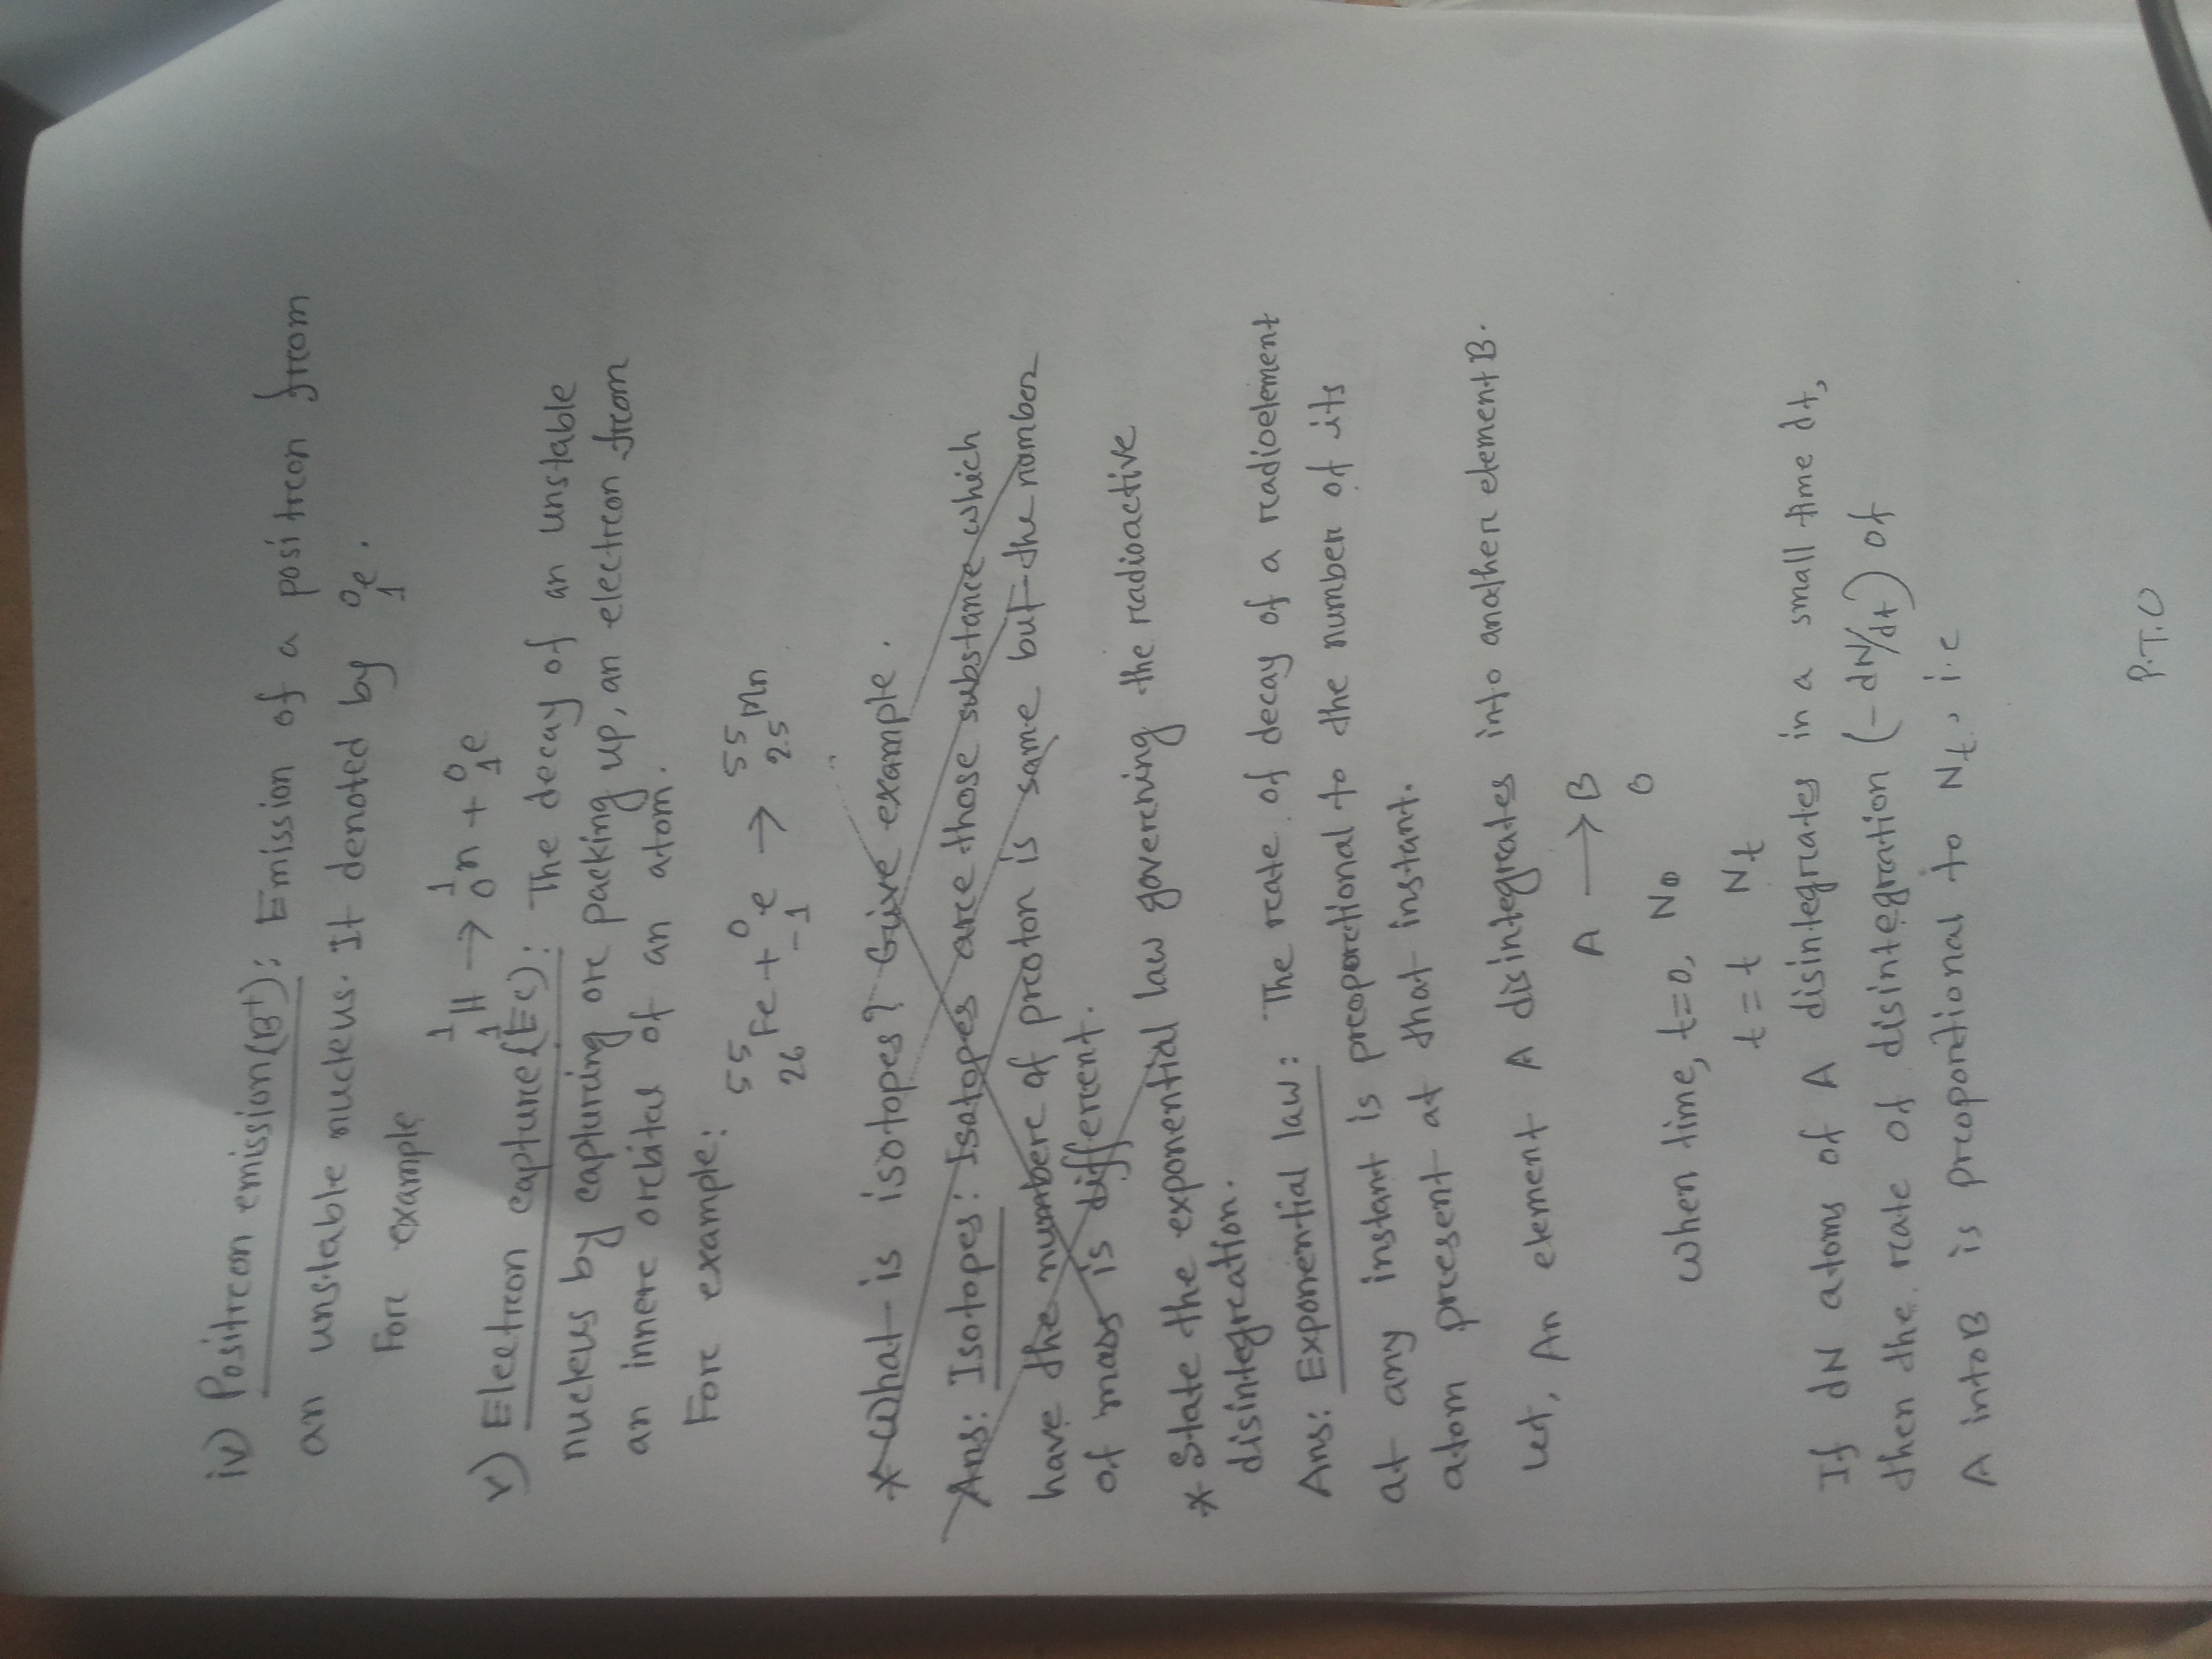 iv) Positron emission(B⁺): Emission of a positron from
an unstable nucleus. It denoted by ⁰₁e.
For example
¹₁H → ¹₀n + ⁰₁e
v) Electron capture(EC): The decay of an unstable
nucleus by capturing or packing up, an electron from
an inner orbital of an atom.
For example:
⁵⁵₂₆Fe + ⁰₋₁e → ⁵⁵₂₅Mn
* What is isotopes? Give example.
Ans: Isotopes: Isotopes are those substance which
have the number of proton is same but the number
of mass is different.
* State the exponential law governing the radioactive
disintegration.
Ans: Exponential law: The rate of decay of a radioelement
at any instant is proportional to the number of its
atom present at that instant.
Let, An element A disintegrates into another element B.
A → B
When time, t=0, N₀ 0
t=t Nt
If dN atoms of A disintegrates in a small time dt,
then the rate of disintegration (-dN/dt) of
A into B is proportional to Nt, i.e
P.T.O